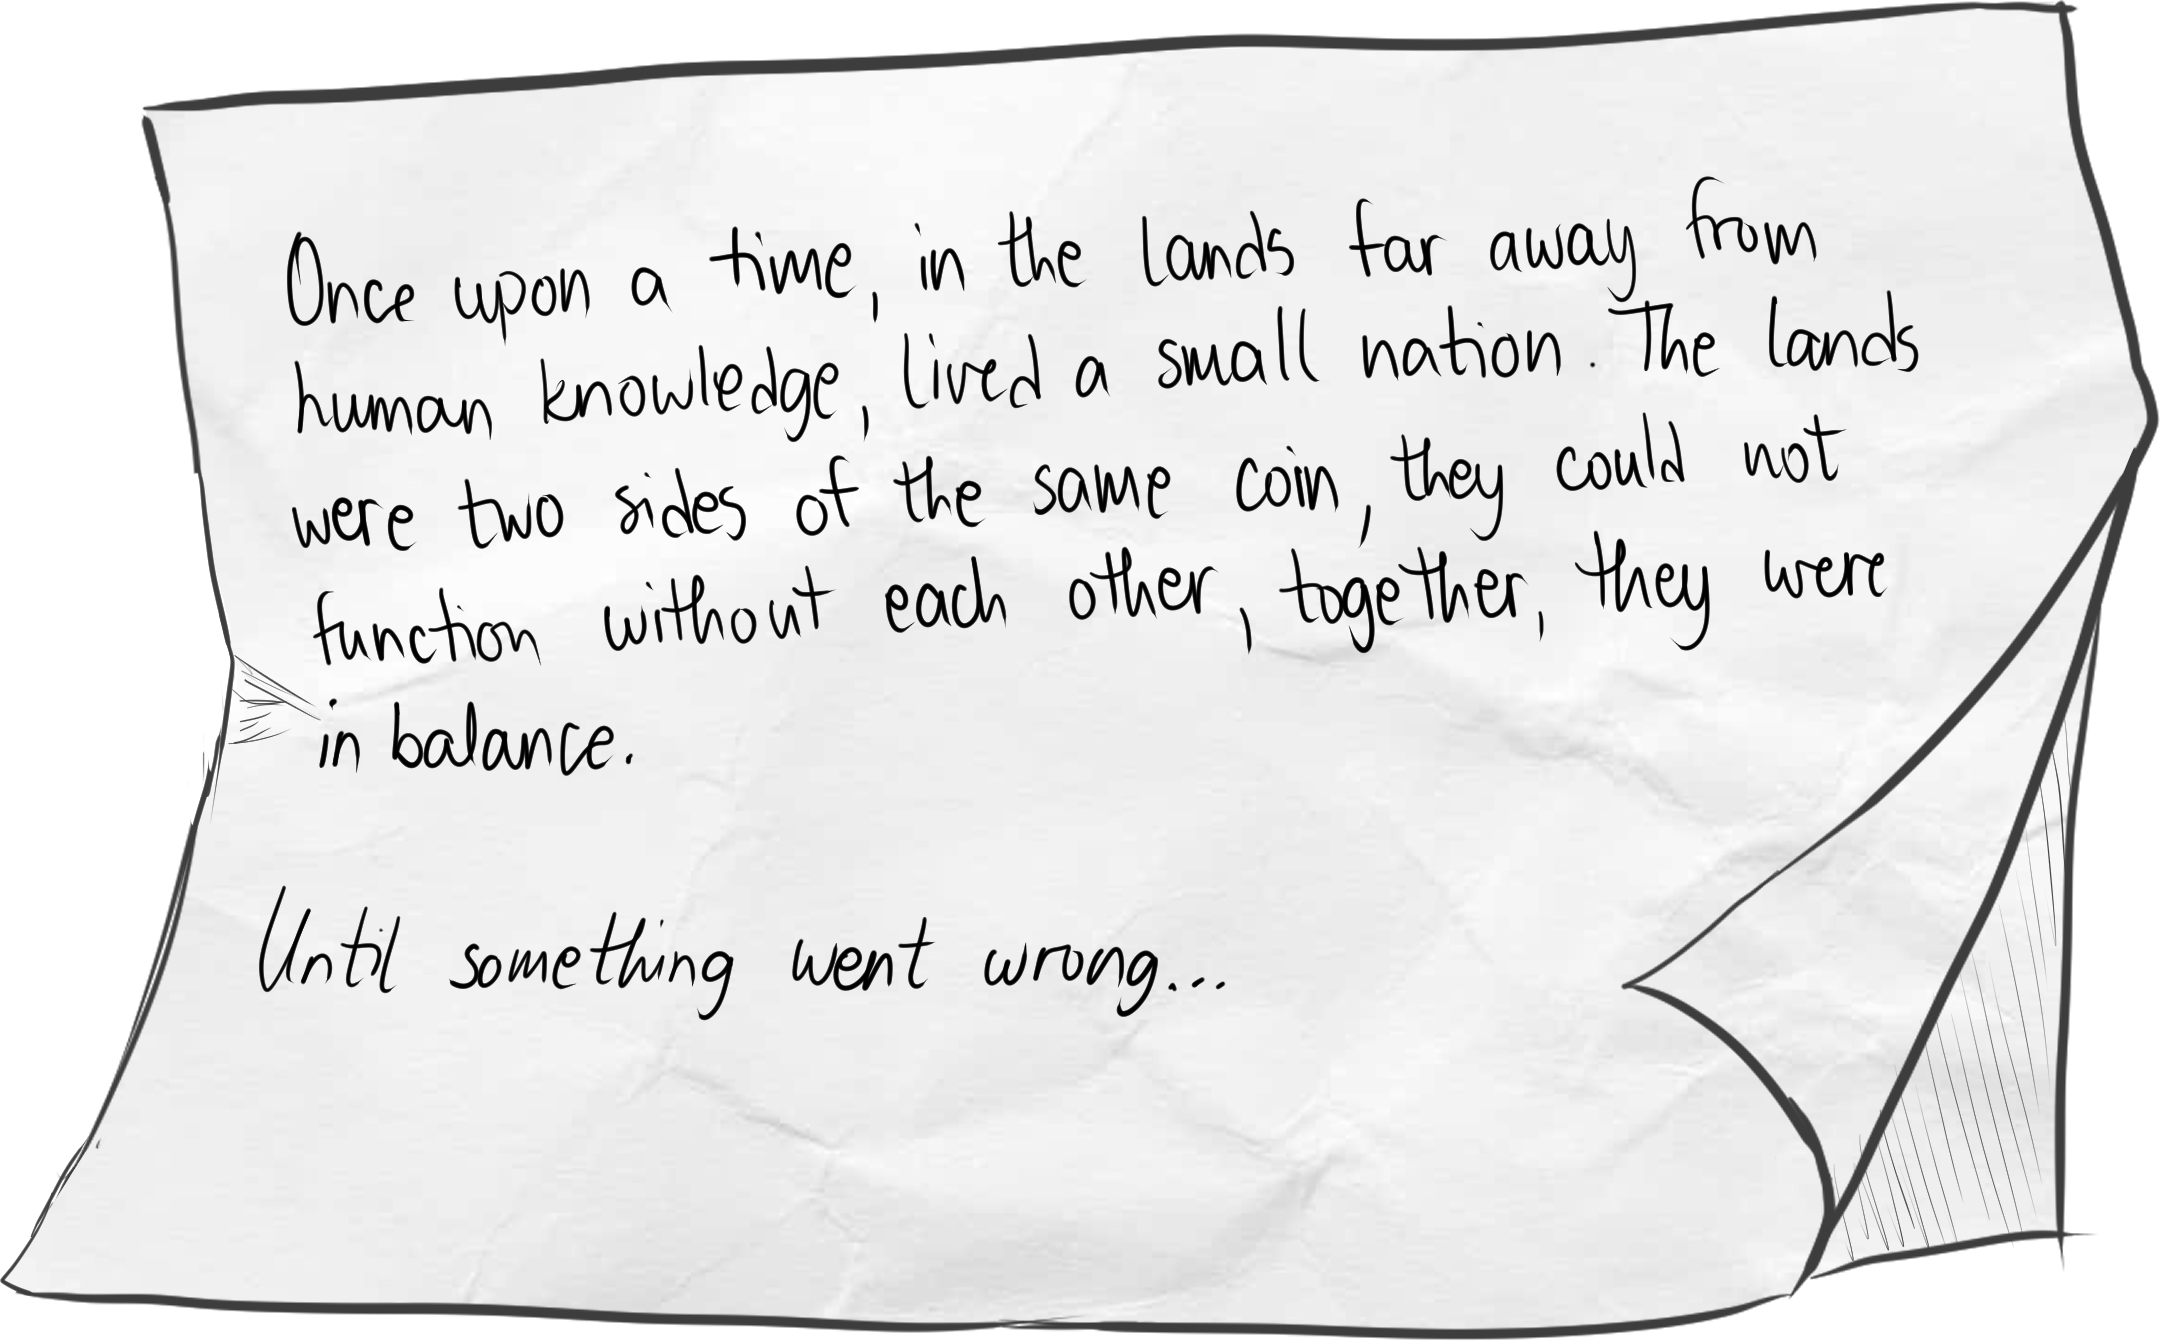 Once upon a time, in the lands far away from
human knowledge, lived a small nation. The lands
were two sides of the same coin, they could not
function without each other, together, they were
in balance.
Until something went wrong...